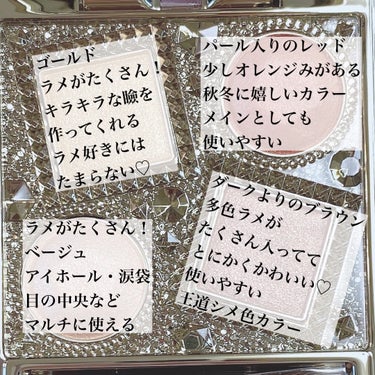 ゴールド
ラメがたくさん！
キラキラな瞼を
作ってくれる
ラメ好きには
たまらない♡
パール入りのレッド
少しオレンジみがある
秋冬に嬉しいカラー
メインとしても
使いやすい
ラメがたくさん！
ベージュ
アイホール・涙袋
目の中央など
マルチに使える
ダークよりのブラウン
多色ラメが
たくさん入ってて
とにかくかわいい♡
使いやすい
王道シメ色カラー